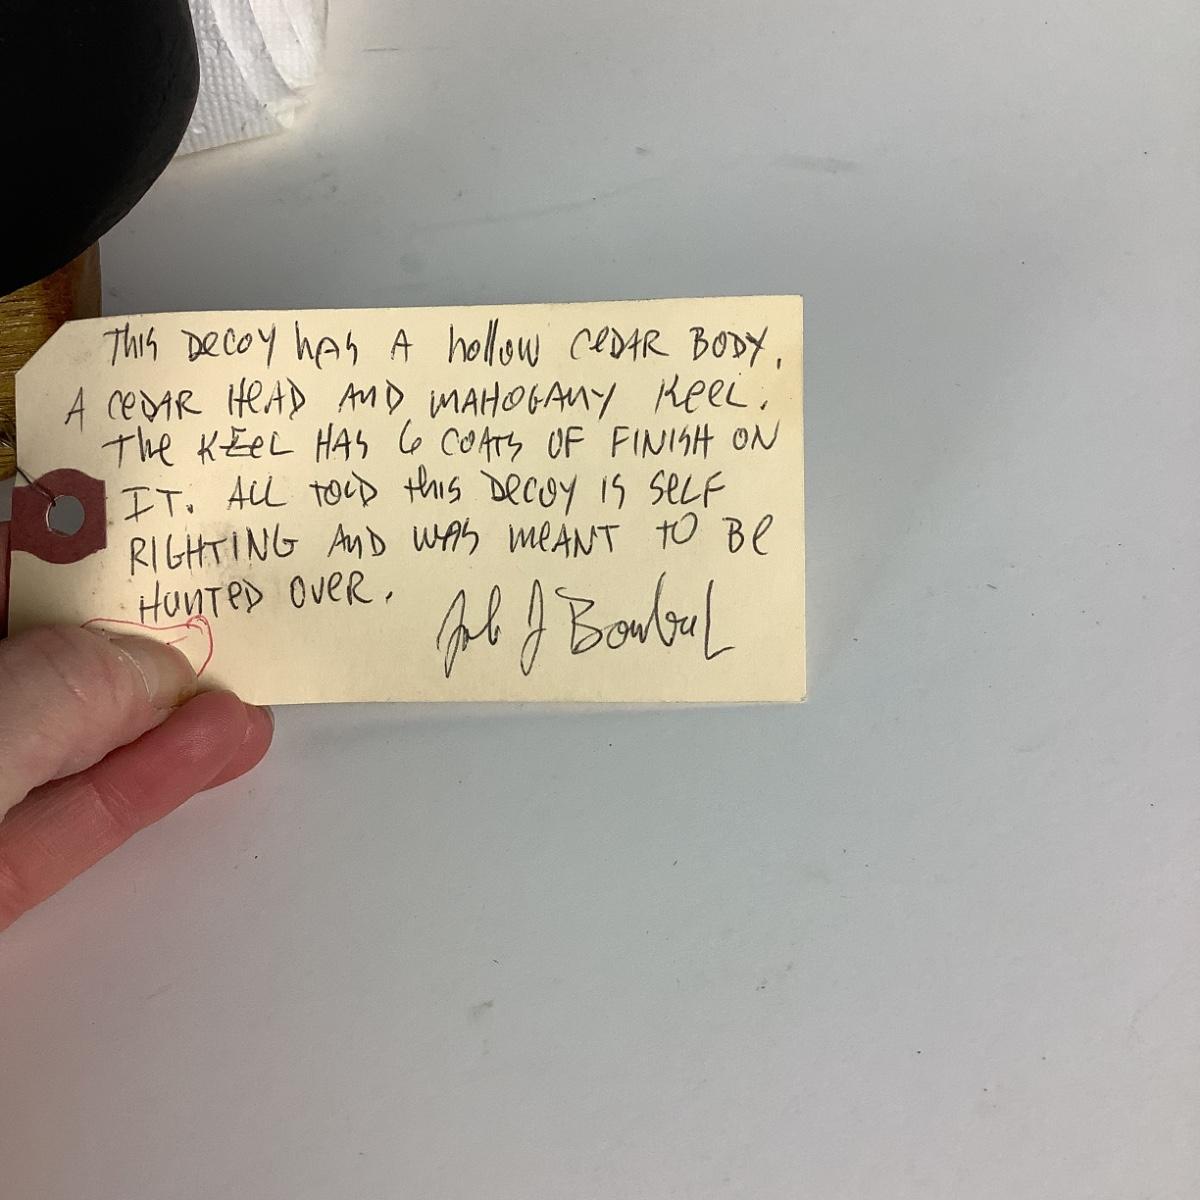 THIS DECOY HAS A hollow CEDAR BODY.
A CEDAR HEAD AND MAHOGANY KEEL.
THE KEEL HAS 6 COATS OF FINISH ON
IT. ALL TOLD THIS DECOY IS SELF
RIGHTING AND WAS MEANT TO BE
HUNTED OVER.
J